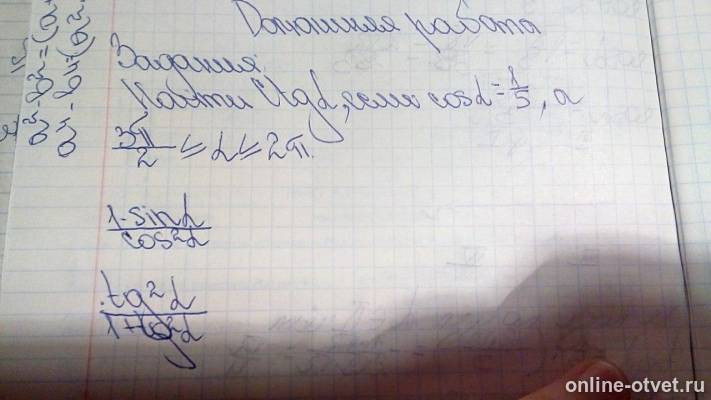 Домашняя работа
Задания.
Найти Ctgα, если cosα = 1/5, а
3π/2 ≤ α ≤ 2π.
1-sinα/cos²α
tg²α/1+tg²α
online-otvet.ru